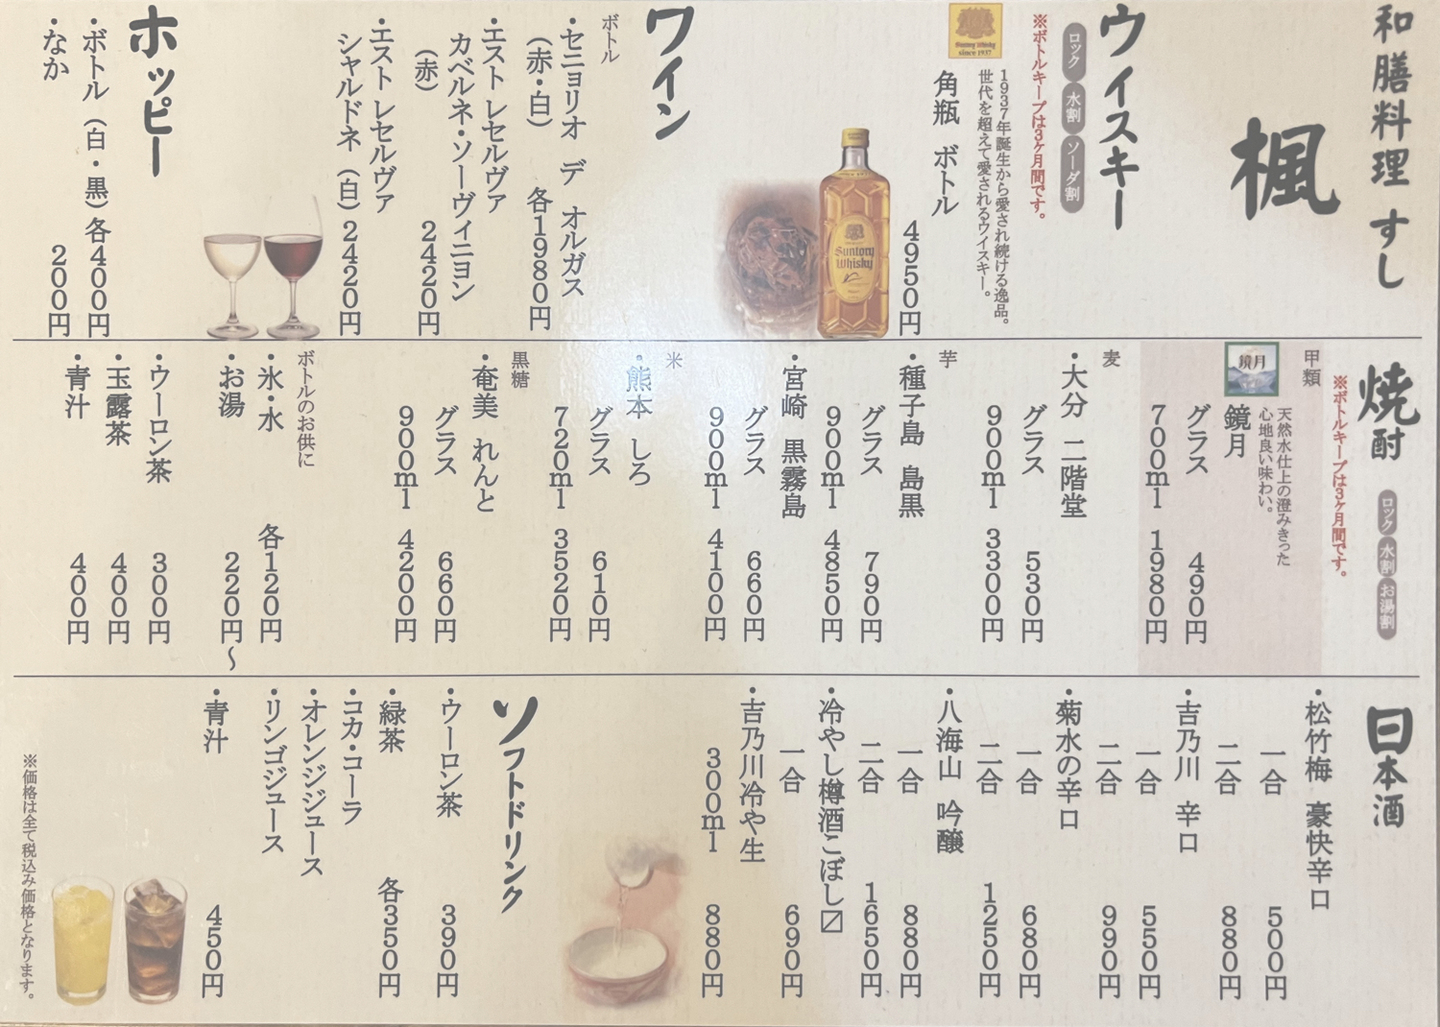 和膳料理 すし
楓
ウイスキー
ロック 水割 ソーダ割
※ボトルキープは3ヶ月間です。
1937年誕生から愛され続ける逸品。
世代を超えて愛されるウイスキー。
Suntory Whisky
since 1937
角瓶 ボトル
4950円
Suntory
Whisky
ワイン
ボトル
・セニョリオ デ オルガス
(赤・白) 各1980円
・エスト レセルヴァ
カベルネ・ソーヴィニヨン
(赤) 2420円
・エスト レセルヴァ
シャルドネ (白) 2420円
ホッピー
・ボトル (白・黒) 各400円
・なか 200円
焼酎
ロック 水割 お湯割
※ボトルキープは3ヶ月間です。
甲類
鏡月
天然水仕上の澄みきった
心地良い味わい。
鏡月
グラス 490円
700ml 1980円
麦
・大分 二階堂
グラス 530円
900ml 3300円
芋
・種子島 島黒
グラス 790円
900ml 4850円
・宮崎 黒霧島
グラス 660円
900ml 4100円
米
・熊本 しろ
グラス 610円
720ml 3520円
黒糖
・奄美 れんと
グラス 660円
900ml 4200円
ボトルのお供に
・氷・水 各120円
・お湯 220円〜
・ウーロン茶 300円
・玉露茶 400円
・青汁 400円
日本酒
・松竹梅 豪快辛口
一合 500円
二合 880円
・吉乃川 辛口
一合 550円
二合 990円
・菊水の辛口
一合 680円
二合 1250円
・八海山 吟醸
一合 880円
二合 1650円
・冷やし樽酒こぼし〼
一合 690円
・吉乃川冷や生
300ml 880円
ソフトドリンク
・ウーロン茶 390円
・緑茶 各350円
・コカ・コーラ
・オレンジジュース
・リンゴジュース
・青汁 450円
※価格は全て税込み価格となります。